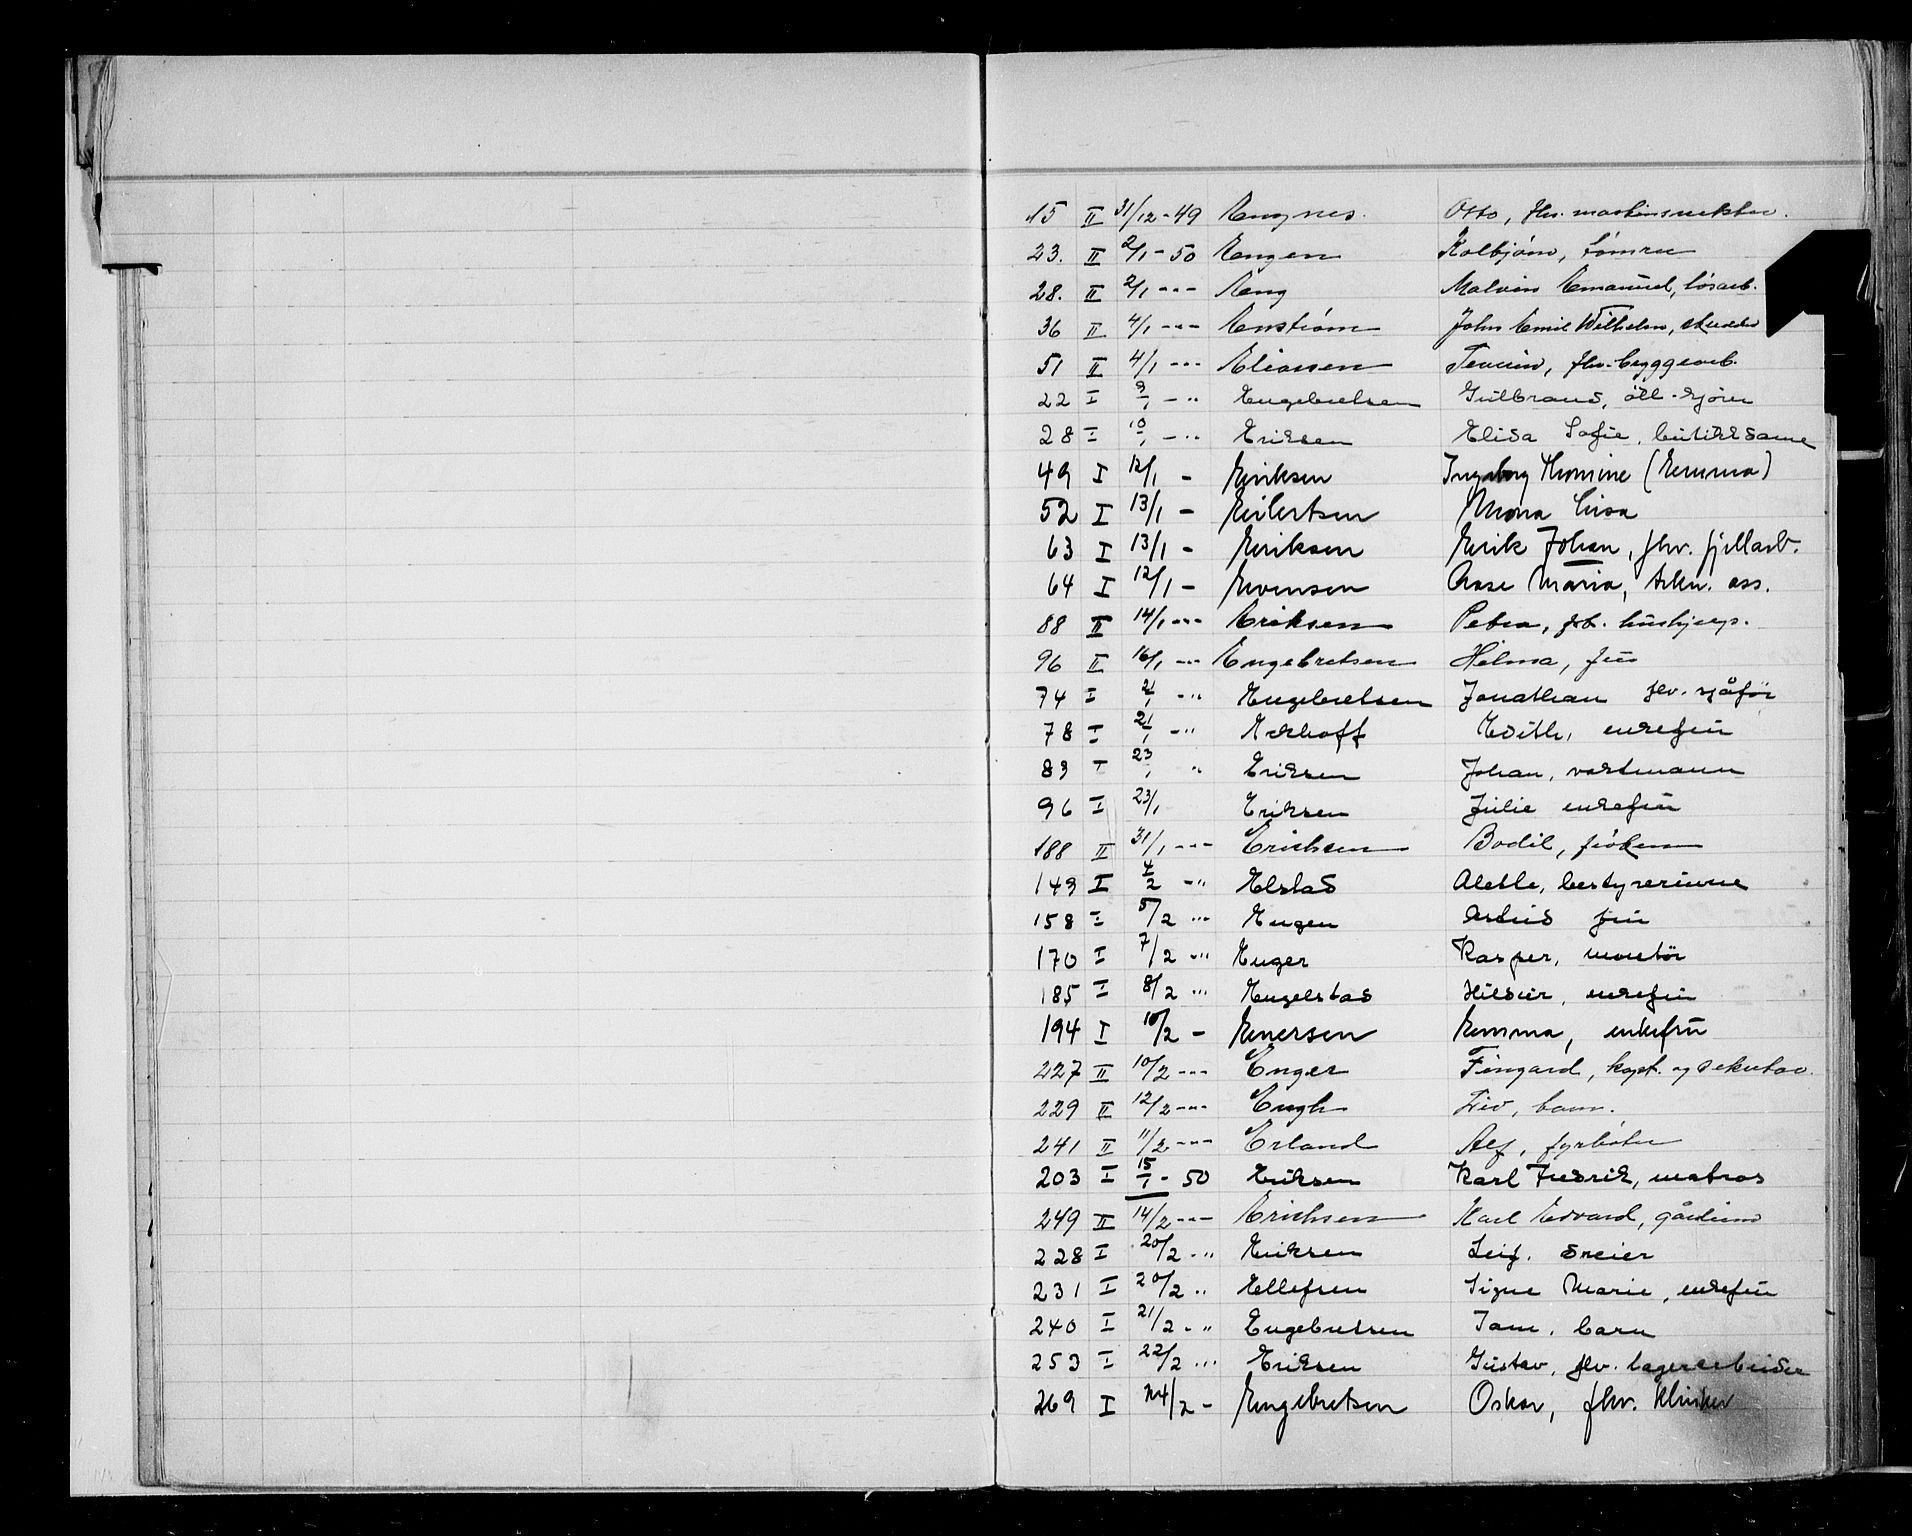 15 II 31/12-49 Engnes Otto, fhv.
23. II 2/1-50 Engen Kolbjörn, tömrer
28. II 2/1 --- Eng Malvin Emanuel, lösarb.
36 II 4/1 --- Enström John Emil Wilhelm,
51 II 4/1 --- Eliassen fhv. byggearb.
22 I 9/1 - " Engebretsen Gulbrand, öll-kjörer
28 I 10/1 - " Eriksen Elida Sofie, butikkdame
49 I 12/1 - Eriksen Ingeborg Thomine (Emma)
52 I 13/1 - Eilertsen Mona Lisa
63 I 13/1 - Eriksen Erik Johan, fhv. fjellarb.
64 I 12/1 - Evensen Aase Maria, tekn. ass.
88 II 14/1 --- Eriksen Petra, frk. hushjelp.
96 II 16/1 --- Engebretsen Hilma, fru
74 I 21/1 - " Engebretsen Jonathan fhv. sjåför
78 I 21/1 - " Eckhoff Edith, enkefru
83 I 23/1 " Eriksen Johan, vaktmann
96 I 23/1 Eriksen Julie enkefru
188 II 31/1 --- Erichsen Bodil, fröken
149 I 4/2 - " Elstad Alethe, bestyrerinne
158 I 5/2 - " Engen Astrid fru
170 I 7/2 - " Enger Kasper, montör
185 I 8/2 - " Engelstad Hildur, enkefru
194 I 10/2 - Enersen Emma, enkefru
227 II 10/2 --- Enger Fingard, kapt. og sekretær
229 II 12/2 --- Engh Liv, barn.
241 II 11/2 --- Erland Alf, fyrböter
203 I 15/1 - 50 Eriksen Karl Fredrik, matros
249 II 14/2 --- Erichsen Karl Edvard,
228 I 20/2 - " Eriksen Leif. Smeier
231 I 20/2 - " Ellefsen Signe Marie, enkefru
240 I 21/2 - " Engebretsen barn
253 I 22/2 - " Eriksen Gustav, fhv. lagerarbeider
269 I 24/2 - Engebretsen Oskar, fhv. klinker